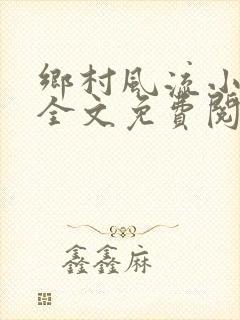 鄉村風流小
全文免費閱
鑫鑫麻